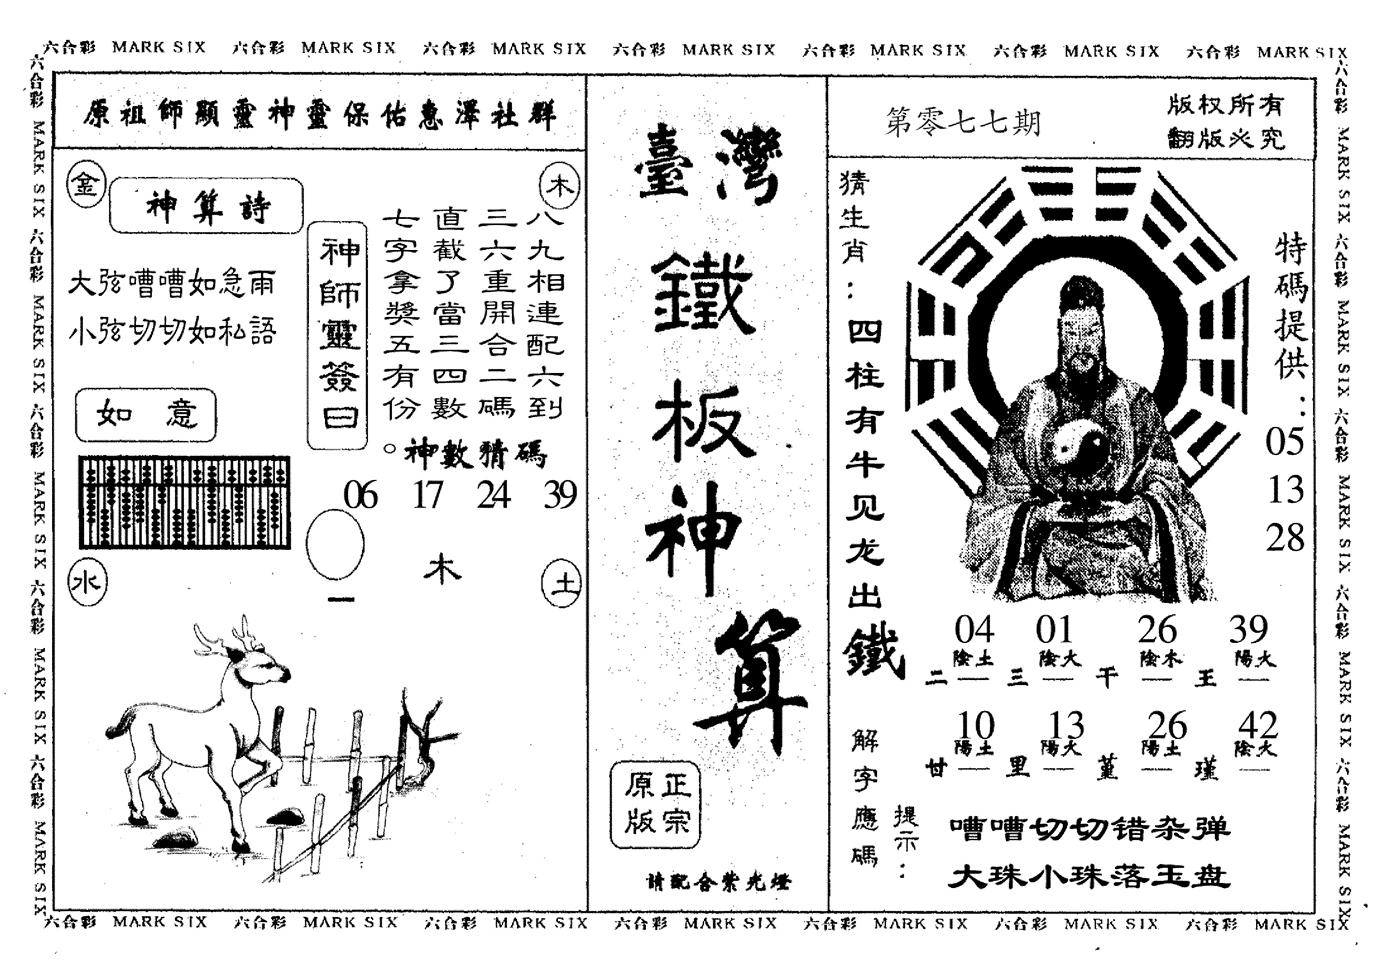 六合彩 MARK SIX 六合彩 MARK SIX 六合彩 MARK SIX 六合彩 MARK SIX 六合彩 MARK SIX 六合彩 MARK SIX 六合彩 MARK SIX
六合彩 MARK SIX 六合彩 MARK SIX 六合彩 MARK SIX 六合彩 MARK SIX 六合彩 MARK SIX
原祖師顯靈神靈保佑惠澤社群
金
神算詩
木
大弦嘈嘈如急雨
小弦切切如私語
如意
神師靈簽曰
八九相連配六到
三六重開合二碼
直截了當三四數
七字拿獎五有份。
神數猜碼
06 17 24 39
水
一
木
土
臺灣
鐵板神算
正宗
原版
請配合紫光燈
第零七七期
版权所有
翻版必究
猜生肖：四柱有牛见龙出
特碼提供：
05
13
28
鐵
04 01 26 39
陰土 陰火 陰木 陽火
二 三 干 王
10 13 26 42
陽土 陽火 陽土 陰火
廿 里 堇 瑾
解字應碼
提示：
嘈嘈切切错杂弹
大珠小珠落玉盘
六合彩 MARK SIX 六合彩 MARK SIX 六合彩 MARK SIX 六合彩 MARK SIX 六合彩 MARK SIX
六合彩 MARK SIX 六合彩 MARK SIX 六合彩 MARK SIX 六合彩 MARK SIX 六合彩 MARK SIX 六合彩 MARK SIX 六合彩 MARK SIX